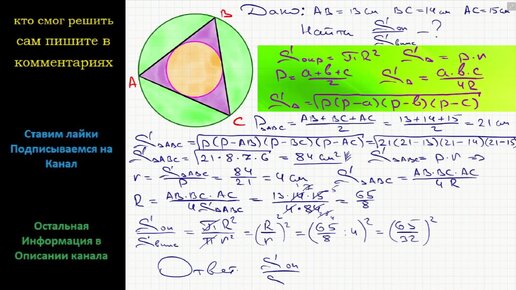 кто смог решить
сам пишите в
комментариях
Ставим лайки
Подписываемся на
Канал
Остальная
Информация в
Описании канала
A
B
C
Дано: AB = 13 см BC = 14 см AC = 15 см
Найти Sоп/Sвпис - ?
Sокр = πR² SΔ = p·r
P = (a+b+c)/2 SΔ = a·b·c/4R
SΔ = √(p(p-a)(p-b)(p-c))
PΔABC = (AB+BC+AC)/2 = (13+14+15)/2 = 21 см
SΔABC = √(p(p-AB)(p-BC)(p-AC)) = √(21(21-13)(21-14)(21-15)
SΔABC = √(21·8·7·6) = 84 см² SΔABC = p·r ⇒
r = SΔABC/p = 84/21 = 4 см SΔABC = AB·BC·AC/4R
R = AB·BC·AC/4SΔABC = 13·14·15/4·84 = 65/8
Sоп/Sвпис = πR²/πr² = (R/r)² = (65/8 : 4)² = (65/32)²
Ответ Sоп